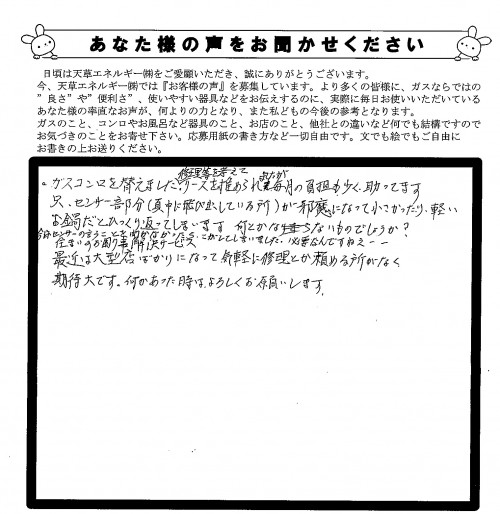 あなた様の声をお聞かせください
日頃は天草エネルギー㈱をご愛顧いただき、誠にありがとうございます。
今、天草エネルギー㈱では『お客様の声』を募集しています。より多くの皆様に、ガスならではの
”良さ”や”便利さ”、使いやすい器具などをお伝えするのに、実際に毎日お使いいただいている
あなた様の率直なお声が、何よりの力となり、また私どもの今後の参考となります。
ガスのこと、コンロやお風呂など器具のこと、お店のこと、他社との違いなど何でも結構ですので
お気づきのことをお寄せ下さい。応募用紙の書き方など一切自由です。文でも絵でもご自由に
お書きの上お送りください。
修理等を考えて
。ガスコンロを替えましたリースを進められ毎月の負担も少く、助ってます
只、センサー部分(真中に飛び出している所)が邪魔になって小さかったり、軽い
お鍋だとひっくり返ってしまいます 何とかならないものでしょうか?
今はセンサーの言うことを聞かなかったらこがしてしまいました。必要なんですねぇーー
住まいのお困り事解決サービス
最近は大型店ばかりになって気軽に修理とか頼める所がなく
期待大です。何かあった時は、よろしくお願いします。